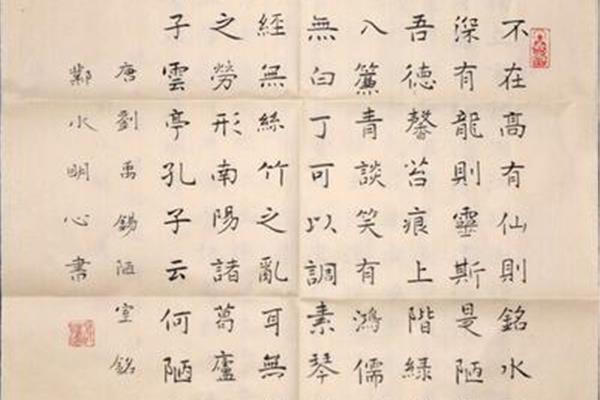 不在高有仙則銘水
深有龍則靈斯是陋
吾德馨苔痕上階綠
入簾青談笑有鴻儒
無白丁可以調素琴
經無絲竹之亂耳無
之勞形南陽諸葛廬
子雲亭孔子云何陋
唐劉禹錫陋室銘
鄴水明心書